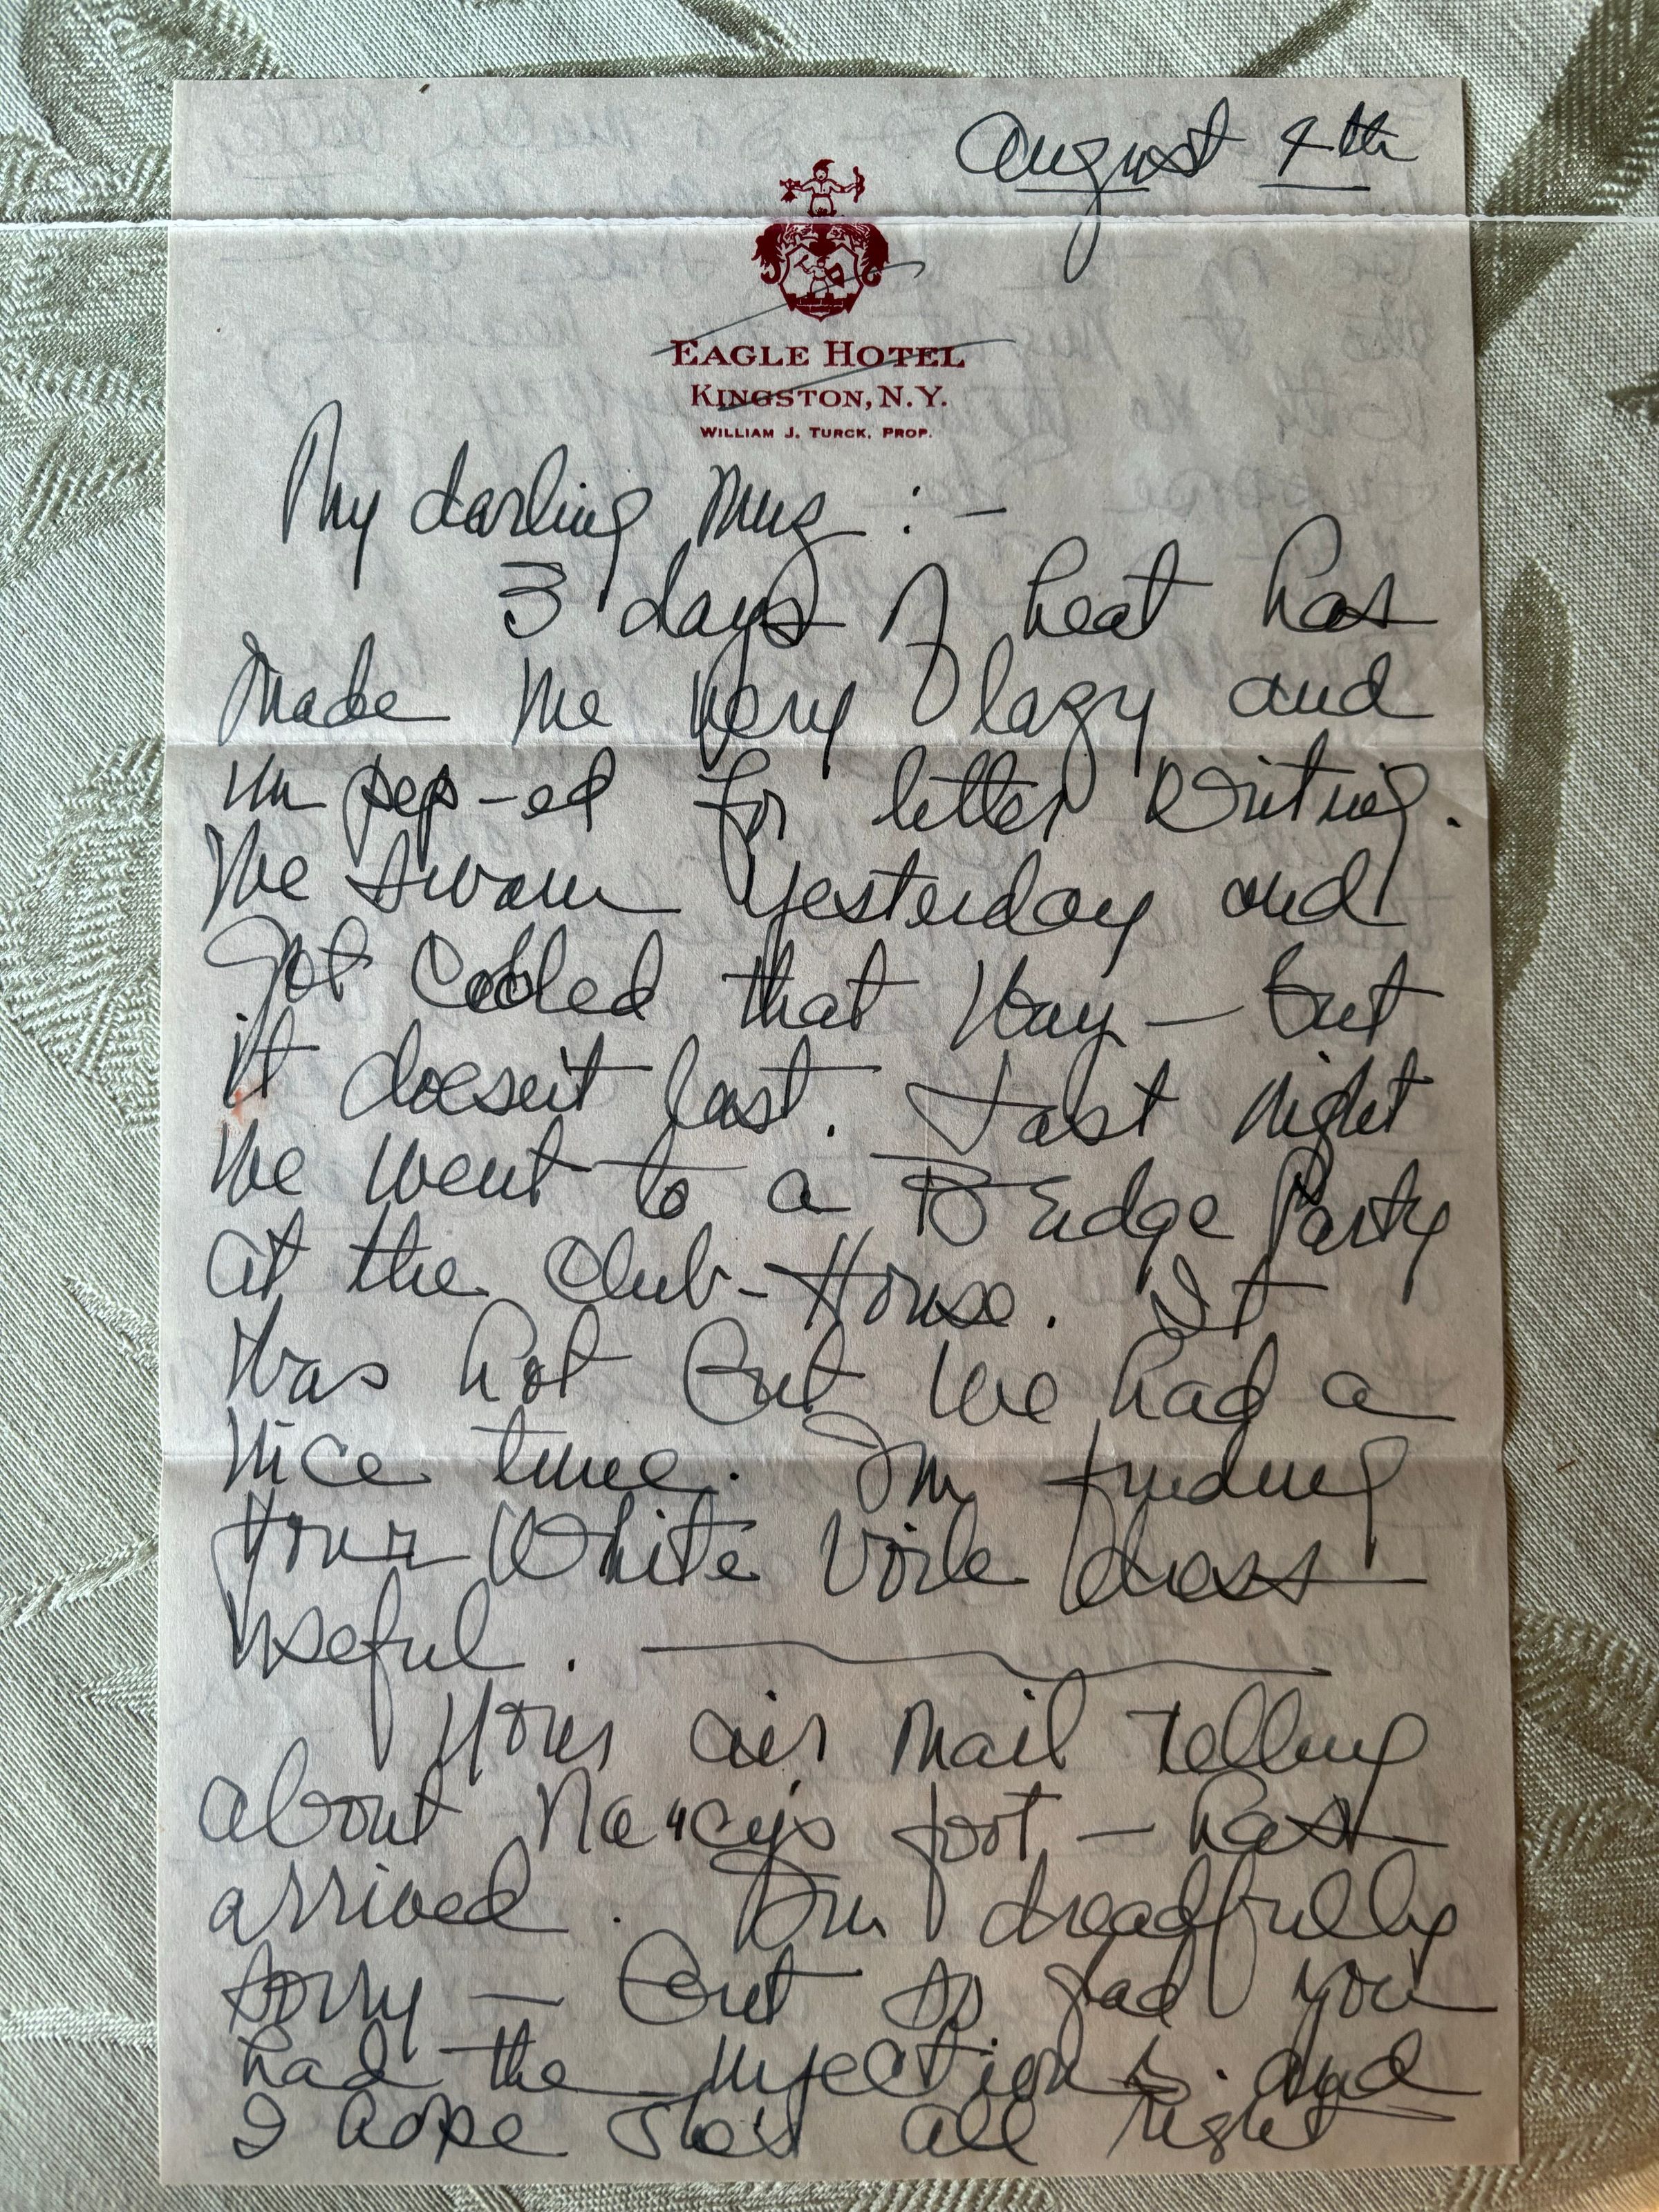 August 4th
EAGLE HOTEL
KINGSTON, N.Y.
WILLIAM J. TURCK, PROP.
My darling Mug : -
3 days of heat has
made me very lazy and
un pep-ed for letter writing.
We swam yesterday and
got cooled that way — but
it doesn't last. Last night
we went to a Bridge Party
at the Club-House. It
was hot but we had a
nice time. I'm finding
your White Voile dress
useful.
Your air mail telling
about Nancy's foot — has
arrived. I'm dreadfully
sorry — but so glad you
had the injections. and
I hope she's all right